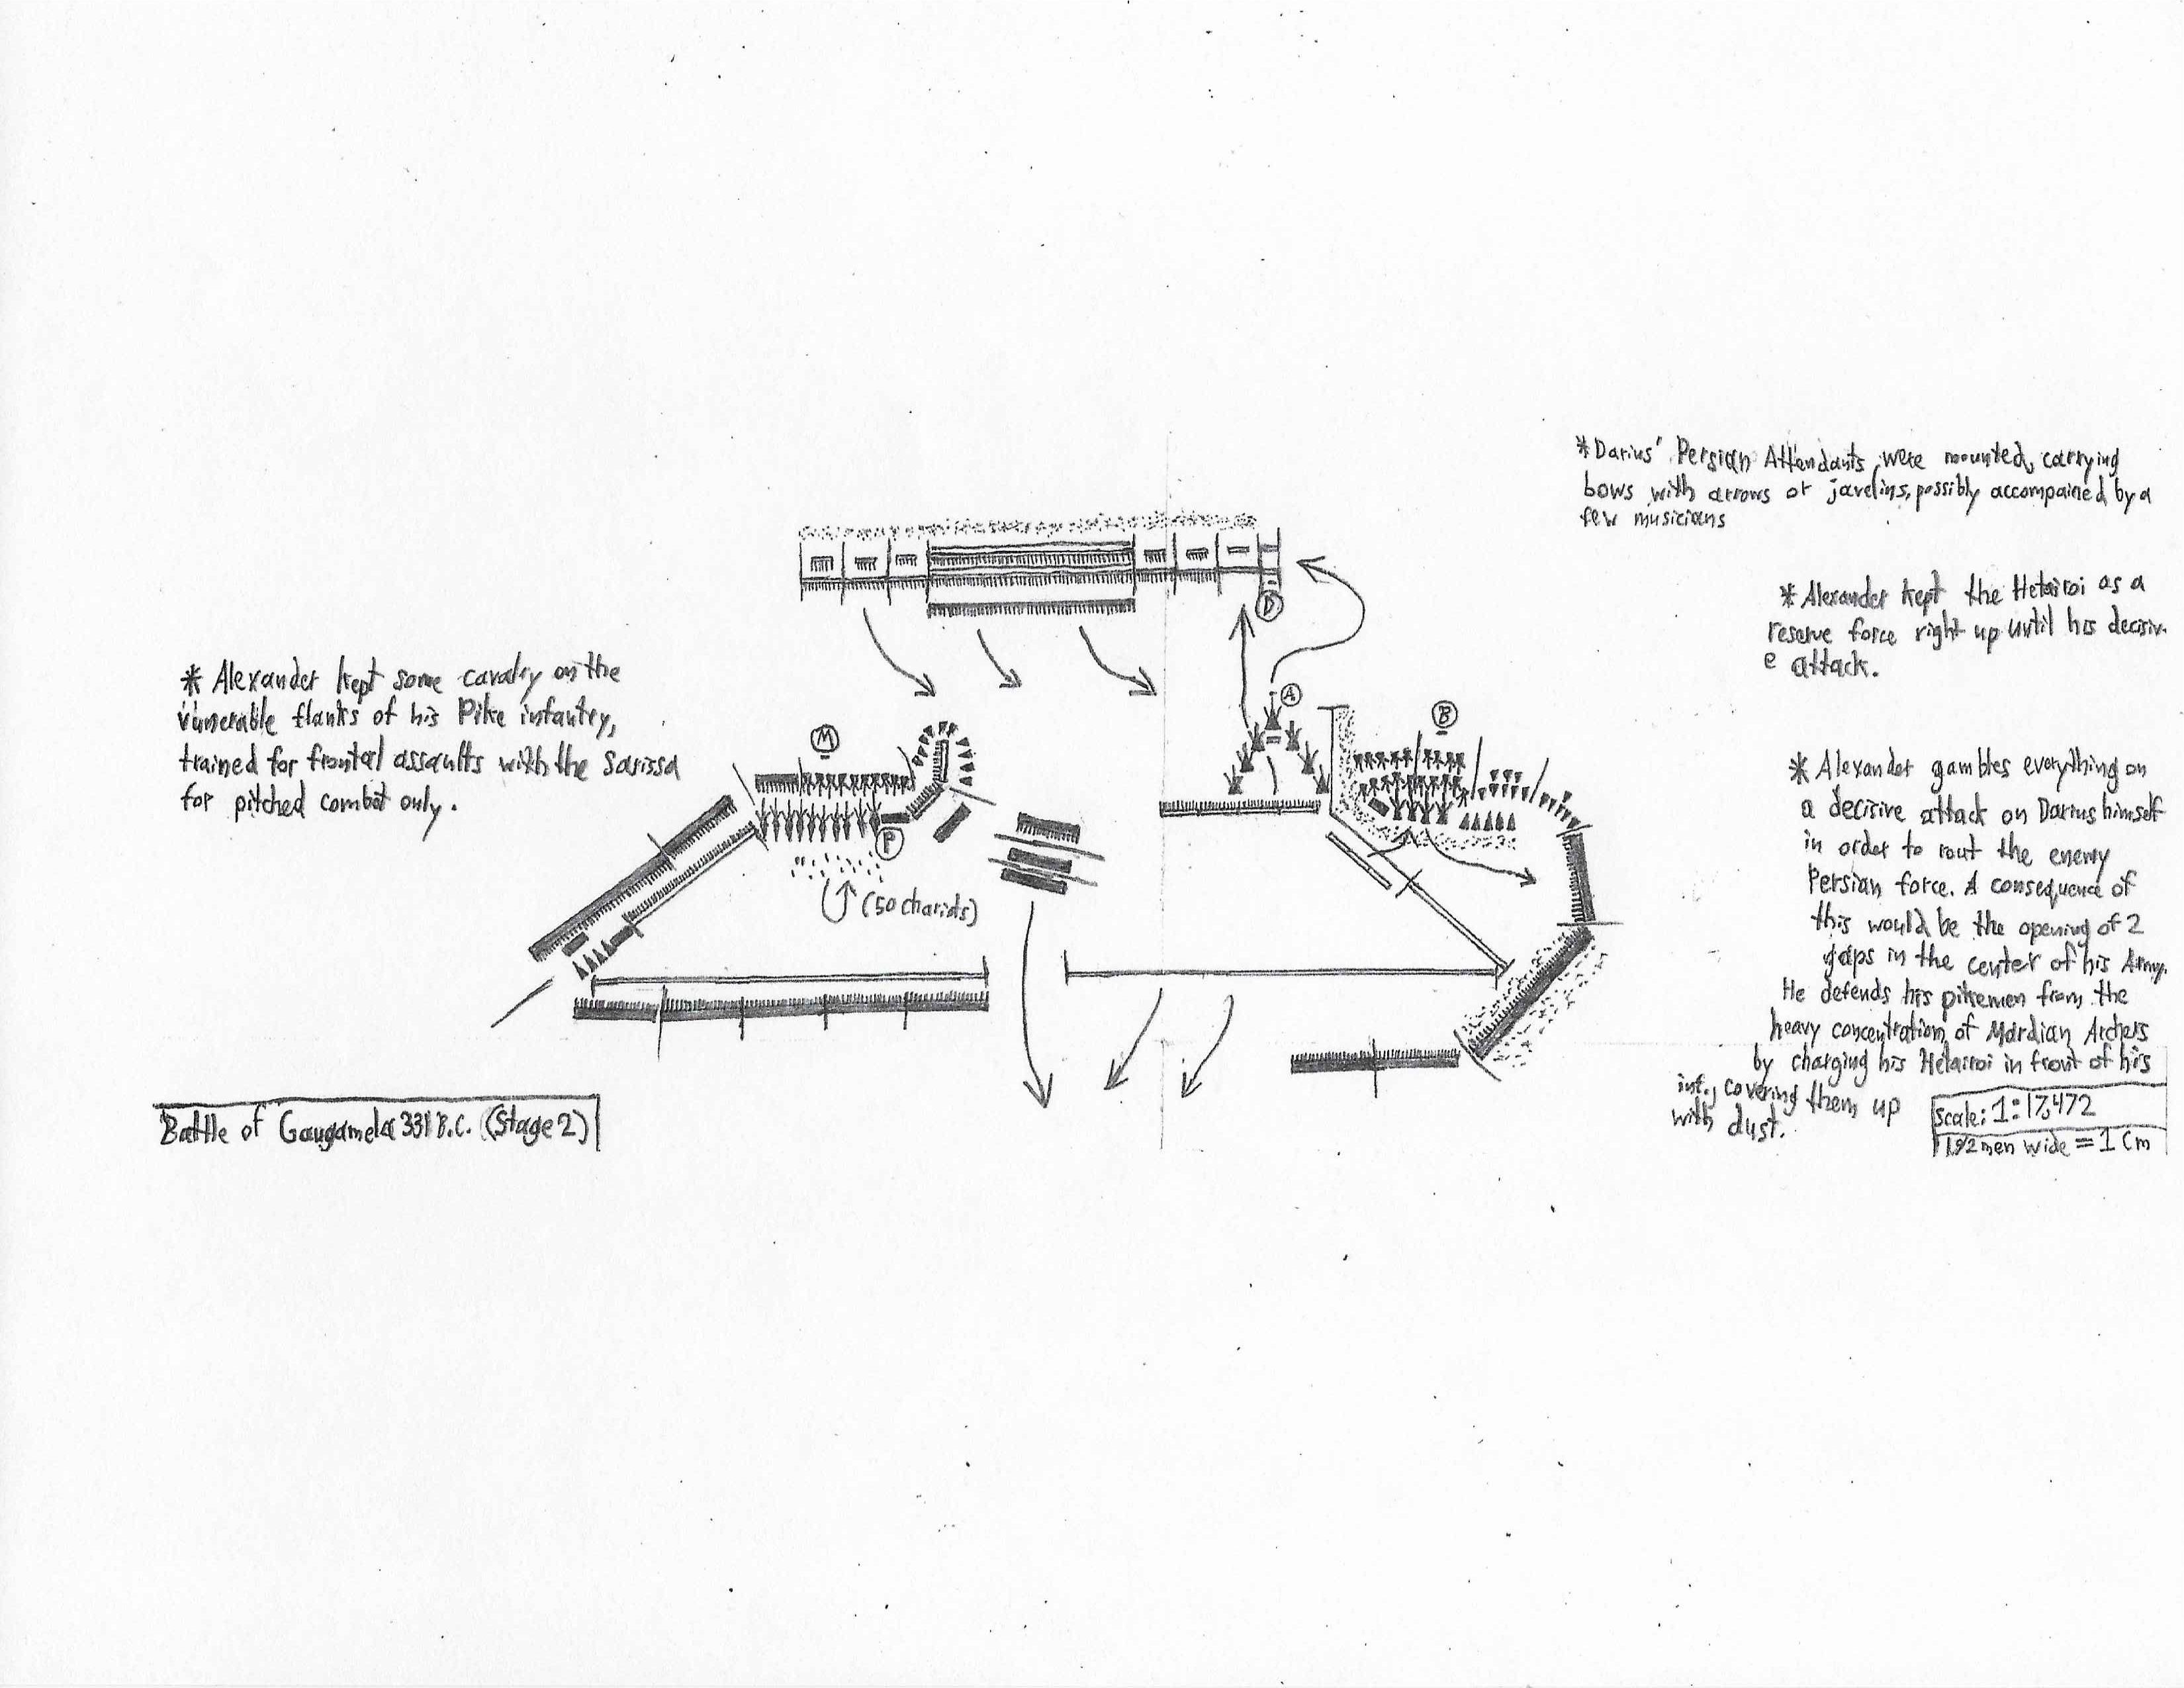 *Darius' Persian Attendants were mounted, carrying
bows with arrows or javelins, possibly accompained by a
few musicians
*Alexander kept the Hetairoi as a
reserve force right up until his decisiv-
e attack.
* Alexander kept some cavalry on the
vunerable flanks of his Pike infantry,
trained for frontal assaults with the sarissa
for pitched combat only.
D
A
B
M
P
(50 chariots)
* Alexander gambles everything on
a decisive attack on Darius himself
in order to rout the enemy
Persian force. A consequence of
this would be the opening of 2
gaps in the center of his Army.
He defends his pikemen from the
heavy concentration of Mardian Archers
by charging his Hetairoi in front of his
inf., covering them up
with dust.
Battle of Gaugamela 331 B.C. (Stage 2)
Scale: 1:17,472
192 men wide = 1 Cm